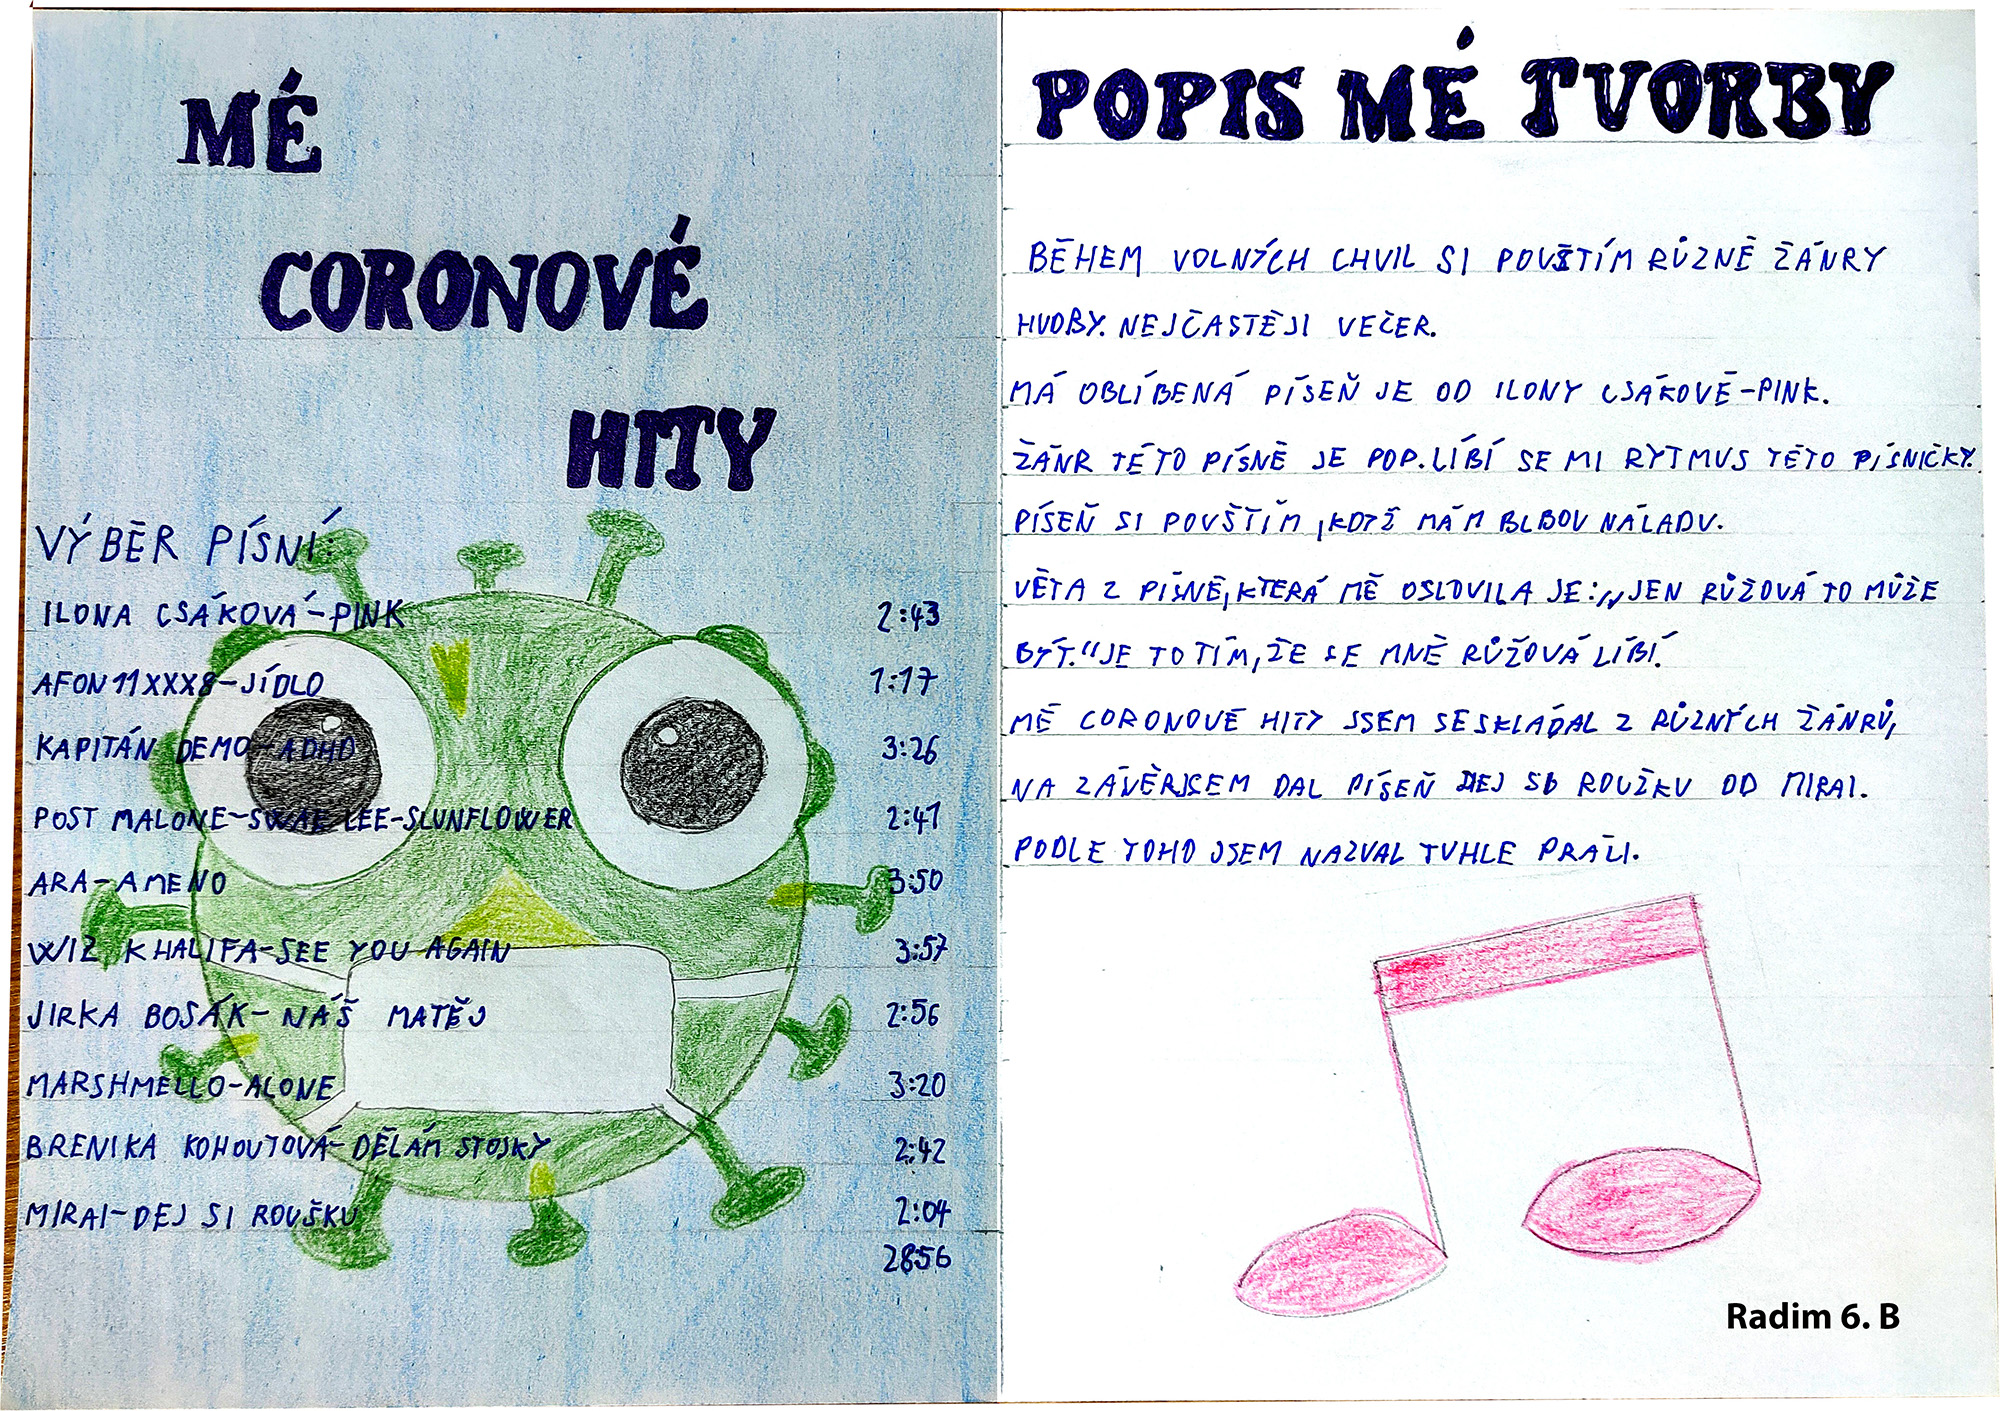 MÉ
CORONOVÉ
HITY
VÝBĚR PÍSNÍ:
ILONA CSÁKOVÁ-PINK 2:43
AFON11XXX8-JÍDLO 1:17
KAPITÁN DEMO-ADHD 3:26
POST MALONE-SWAE LEE-SLUNFLOWER 2:41
ARA-AMENO 3:50
WIZ KHALIFA-SEE YOU AGAIN 3:57
JIRKA BOSÁK-NÁŠ MATĚJ 2:56
MARSHMELLO-ALONE 3:20
BRENIKA KOHOUTOVÁ-DĚLÁM STOJKY 2:42
MIRAI-DEJ SI ROUŠKU 2:04
28:56
POPIS MÉ TVORBY
BĚHEM VOLNÝCH CHVIL SI POUŠTÍM RŮZNÉ ŽÁNRY
HUDBY. NEJČASTĚJI VEČER.
MÁ OBLÍBENÁ PÍSEŇ JE OD ILONY CSÁKOVÉ-PINK.
ŽÁNR TÉTO PÍSNĚ JE POP. LÍBÍ SE MI RYTMUS TÉTO PÍSNIČKY.
PÍSEŇ SI POUŠTÍM, KDYŽ MÁM BLBOU NÁLADU.
VĚTA Z PÍSNĚ, KTERÁ MĚ OSLOVILA JE: „JEN RŮŽOVÁ TO MŮŽE
BÝT.“ JE TO TÍM, ŽE SE MNĚ RŮŽOVÁ LÍBÍ.
MÉ CORONOVÉ HITY JSEM SESKLÁDAL Z RŮZNÝCH ŽÁNRŮ,
NA ZÁVĚR JSEM DAL PÍSEŇ DEJ SI ROUŽKU OD MIRAI.
PODLE TOHO JSEM NAZVAL TUHLE PRÁCI.
Radim 6. B